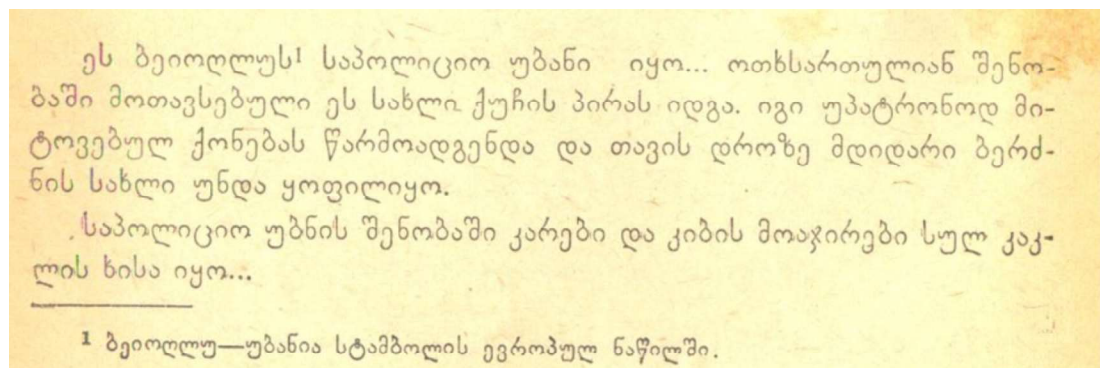 ეს ბეიოღლუს¹ საპოლიციო უბანი იყო... ოთხსართულიან შენო-
ბაში მოთავსებული ეს სახლი ქუჩის პირას იდგა. იგი უპატრონოდ მი-
ტოვებულ ქონებას წარმოადგენდა და თავის დროზე მდიდარი ბერძ-
ნის სახლი უნდა ყოფილიყო.
საპოლიციო უბნის შენობაში კარები და კიბის მოაჯირები სულ კაკ-
ლის ხისა იყო...
¹ ბეიოღლუ—უბანია სტამბოლის ევროპულ ნაწილში.